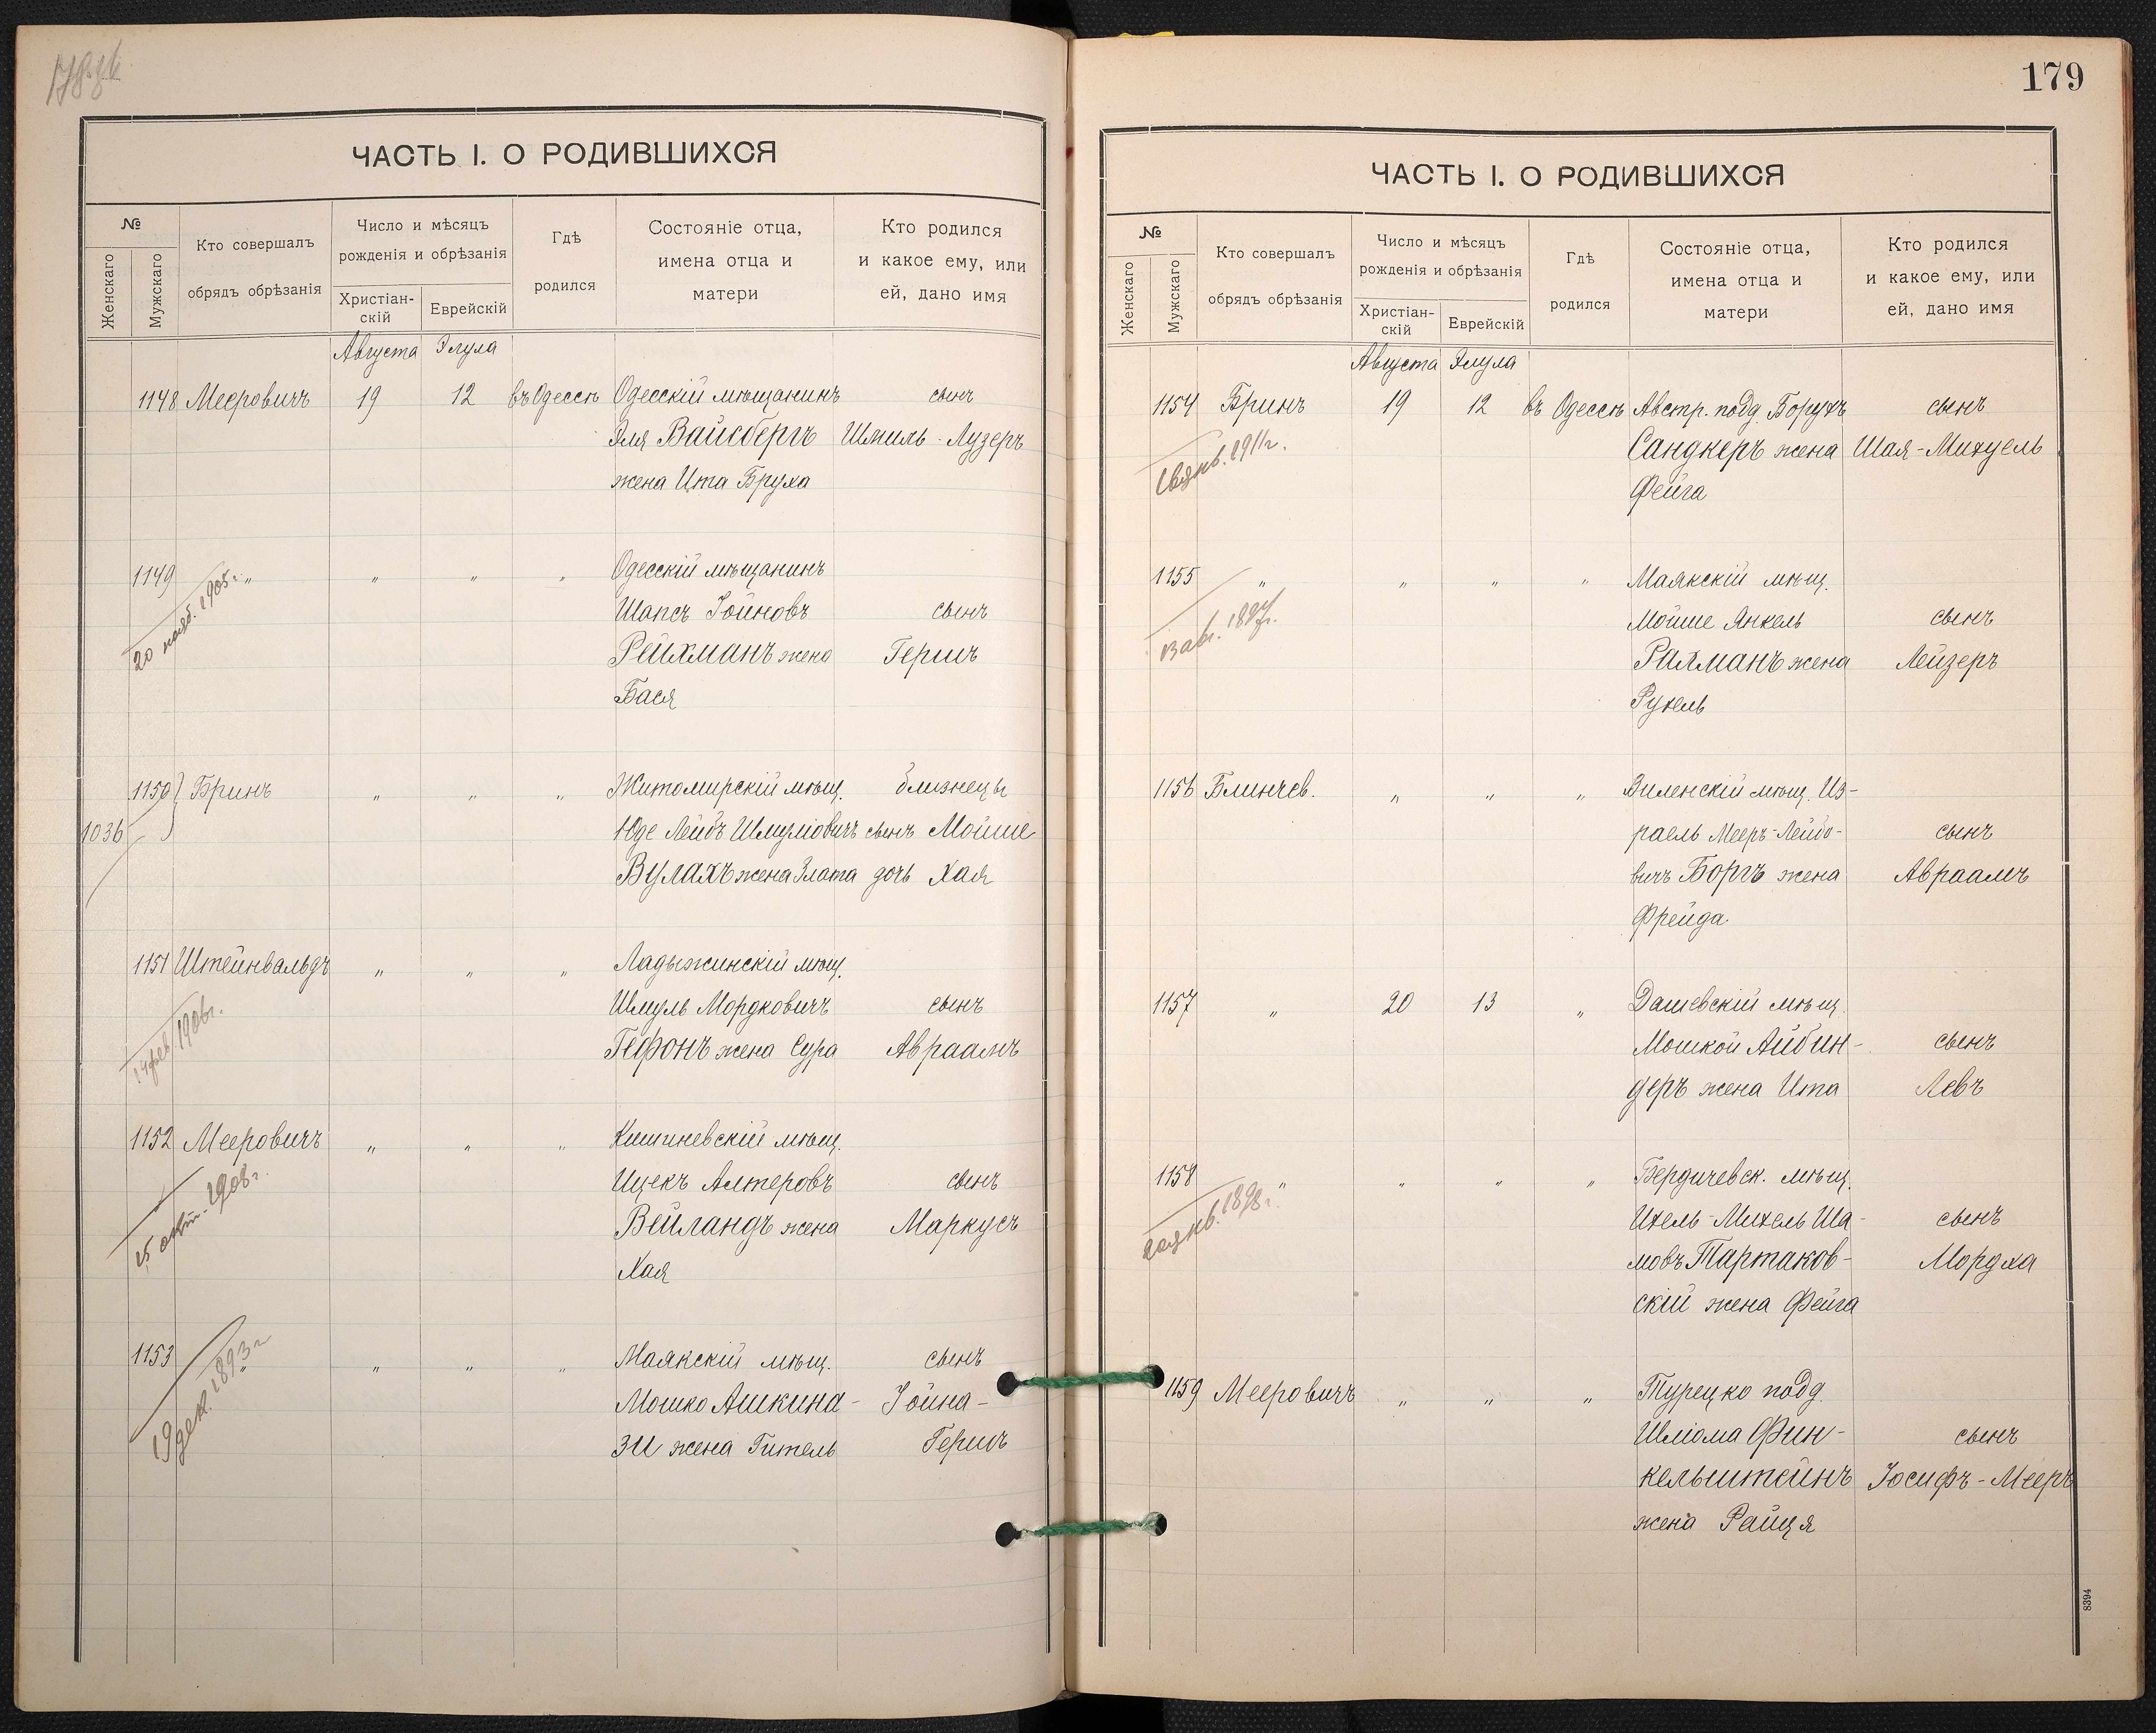 178об
ЧАСТЬ I. О РОДИВШИХСЯ
№
Женскаго
Мужскаго
Кто совершалъ
обрядъ обрѣзанія
Число и мѣсяцъ
рожденія и обрѣзанія
Христіан-
скій
Еврейскій
Гдѣ
родился
Состояніе отца,
имена отца и
матери
Кто родился
и какое ему, или
ей, дано имя
Августа Элула
1148 Мееровичъ 19 12 въ Одессѣ Одесскій мѣщанинъ сынъ
Эля Вайсбергъ Шмиль-Лузеръ
жена Ита Бруха
1149 " " " " Одесскій мѣщанинъ
20 нояб. 1905 г.
Шапсъ Іойновъ сынъ
Рейхманъ жена Гершъ
Бася
1150 Бринъ " " " Житомирскій мѣщ. близнецы
1036 Юде Лейбъ Шмуліовичъ сынъ Мойше
Вулахъ жена Злата дочь Хая
1151 Штейнвальдъ " " " Ладыжинскій мѣщ.
14 фев. 1906 г.
Шмуль Мордковичъ сынъ
Гефонъ жена Сура Авраамъ
1152 Мееровичъ " " " Кишиневскій мѣщ.
25 окт. 1908 г.
Ицекъ Алтеровъ сынъ
Вейландъ жена Маркусъ
Хая
1153 " " " " Маякскій мѣщ. сынъ
19 дек. 1893 г.
Мошко Ашкина- Іойна-
зи жена Гитель Гершъ
179
ЧАСТЬ I. О РОДИВШИХСЯ
№
Женскаго
Мужскаго
Кто совершалъ
обрядъ обрѣзанія
Число и мѣсяцъ
рожденія и обрѣзанія
Христіан-
скій
Еврейскій
Гдѣ
родился
Состояніе отца,
имена отца и
матери
Кто родился
и какое ему, или
ей, дано имя
Августа Элула
1154 Бринъ 19 12 въ Одессѣ Австр. подд. Борухъ сынъ
янв. 1911 г.
Сандкеръ жена Шая-Михуель
Фейга
1155 " " " " Маякскій мѣщ.
1897 г.
Мойше Янкель сынъ
Рахманъ жена Лейзеръ
Рухель
1156 Блинчев. " " " Виленскій мѣщ. Из-
раель Мееръ-Лейбо- сынъ
вичъ Боргъ жена Авраамъ
Фрейда
1157 " 20 13 " Дашевскій мѣщ.
Мошкой Айбин- сынъ
деръ жена Ита Левъ
1158 " " " " Бердичевск. мѣщ.
янв. 1898 г.
Ихель-Михель Ша- сынъ
мовъ Тартаков- Мордха
скій жена Фейга
1159 Мееровичъ " " " Турецко подд.
Шліома Фин- сынъ
кельштейнъ Іосифъ-Мееръ
жена Райця
8394